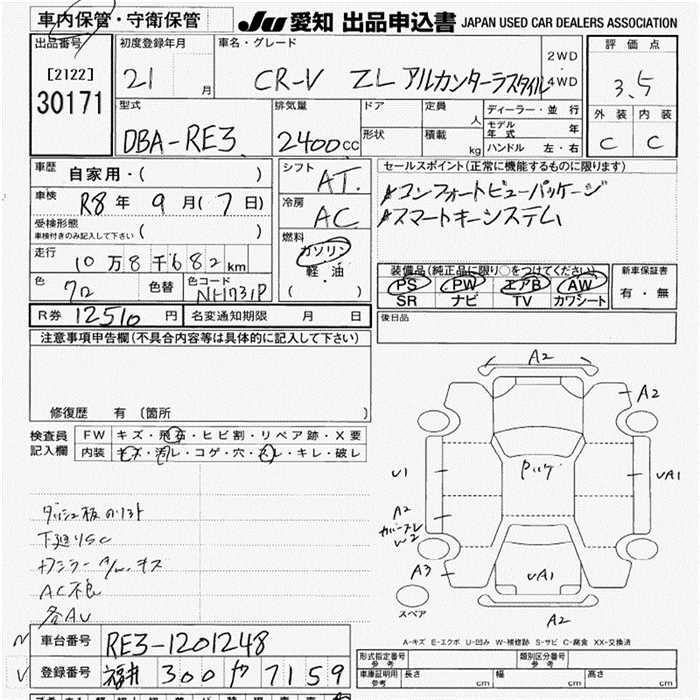 車内保管・守衛保管
JU 愛知 出品申込書 JAPAN USED CAR DEALERS ASSOCIATION
出品番号
[2122]
30171
初度登録年月
21 月
車名・グレード
CR-V ZL アルカンターラスタイル
2WD
・
4WD
評価点
3.5
外装 内装
C C
型式
DBA-RE3
排気量
2400cc
ドア
形状
定員 人
積載 kg
ディーラー・並行
モデル年式 年
ハンドル 左・右
車歴 自家用・( )
車検 R8年 9月(7日)
受検形態
車検付きのみ記入して下さい ( )
走行
10万8千682km
色
クロ
色替
色コード
NH731P
シフト
AT.
冷房
AC
燃料
ガソリン
軽・油
( )
セールスポイント(正常に機能するものに限ります)
コンフォートビューパッケージ
スマートキーシステム
装備品(純正品に限り○をつけてください)
PS PW エアB AW
SR ナビ TV カワシート
新車保証書
有・無
R券 12510円
名変通知期限 月 日
後日品
注意事項申告欄(不具合内容等は具体的に記入して下さい)
修復歴 有 (箇所 )
検査員記入欄
FW キズ・飛石・ヒビ割・リペア跡・X要
内装 キズ・汚レ・コゲ・穴・スレ・キレ・破レ
下廻りSC
AC不良
各AU
A2
A2
U1
UA1
A2
W2
A3
UA1
A2
スペア
A-キズ E-エクボ U-凹み W-補修跡 S-サビ C-腐食 XX-交換済
車台番号 RE3-1201248
登録番号 福井 300 や 7159
形式指定番号
参考
類別区分番号
参考
車庫証明用
参考
長さ cm 幅 cm 高さ cm